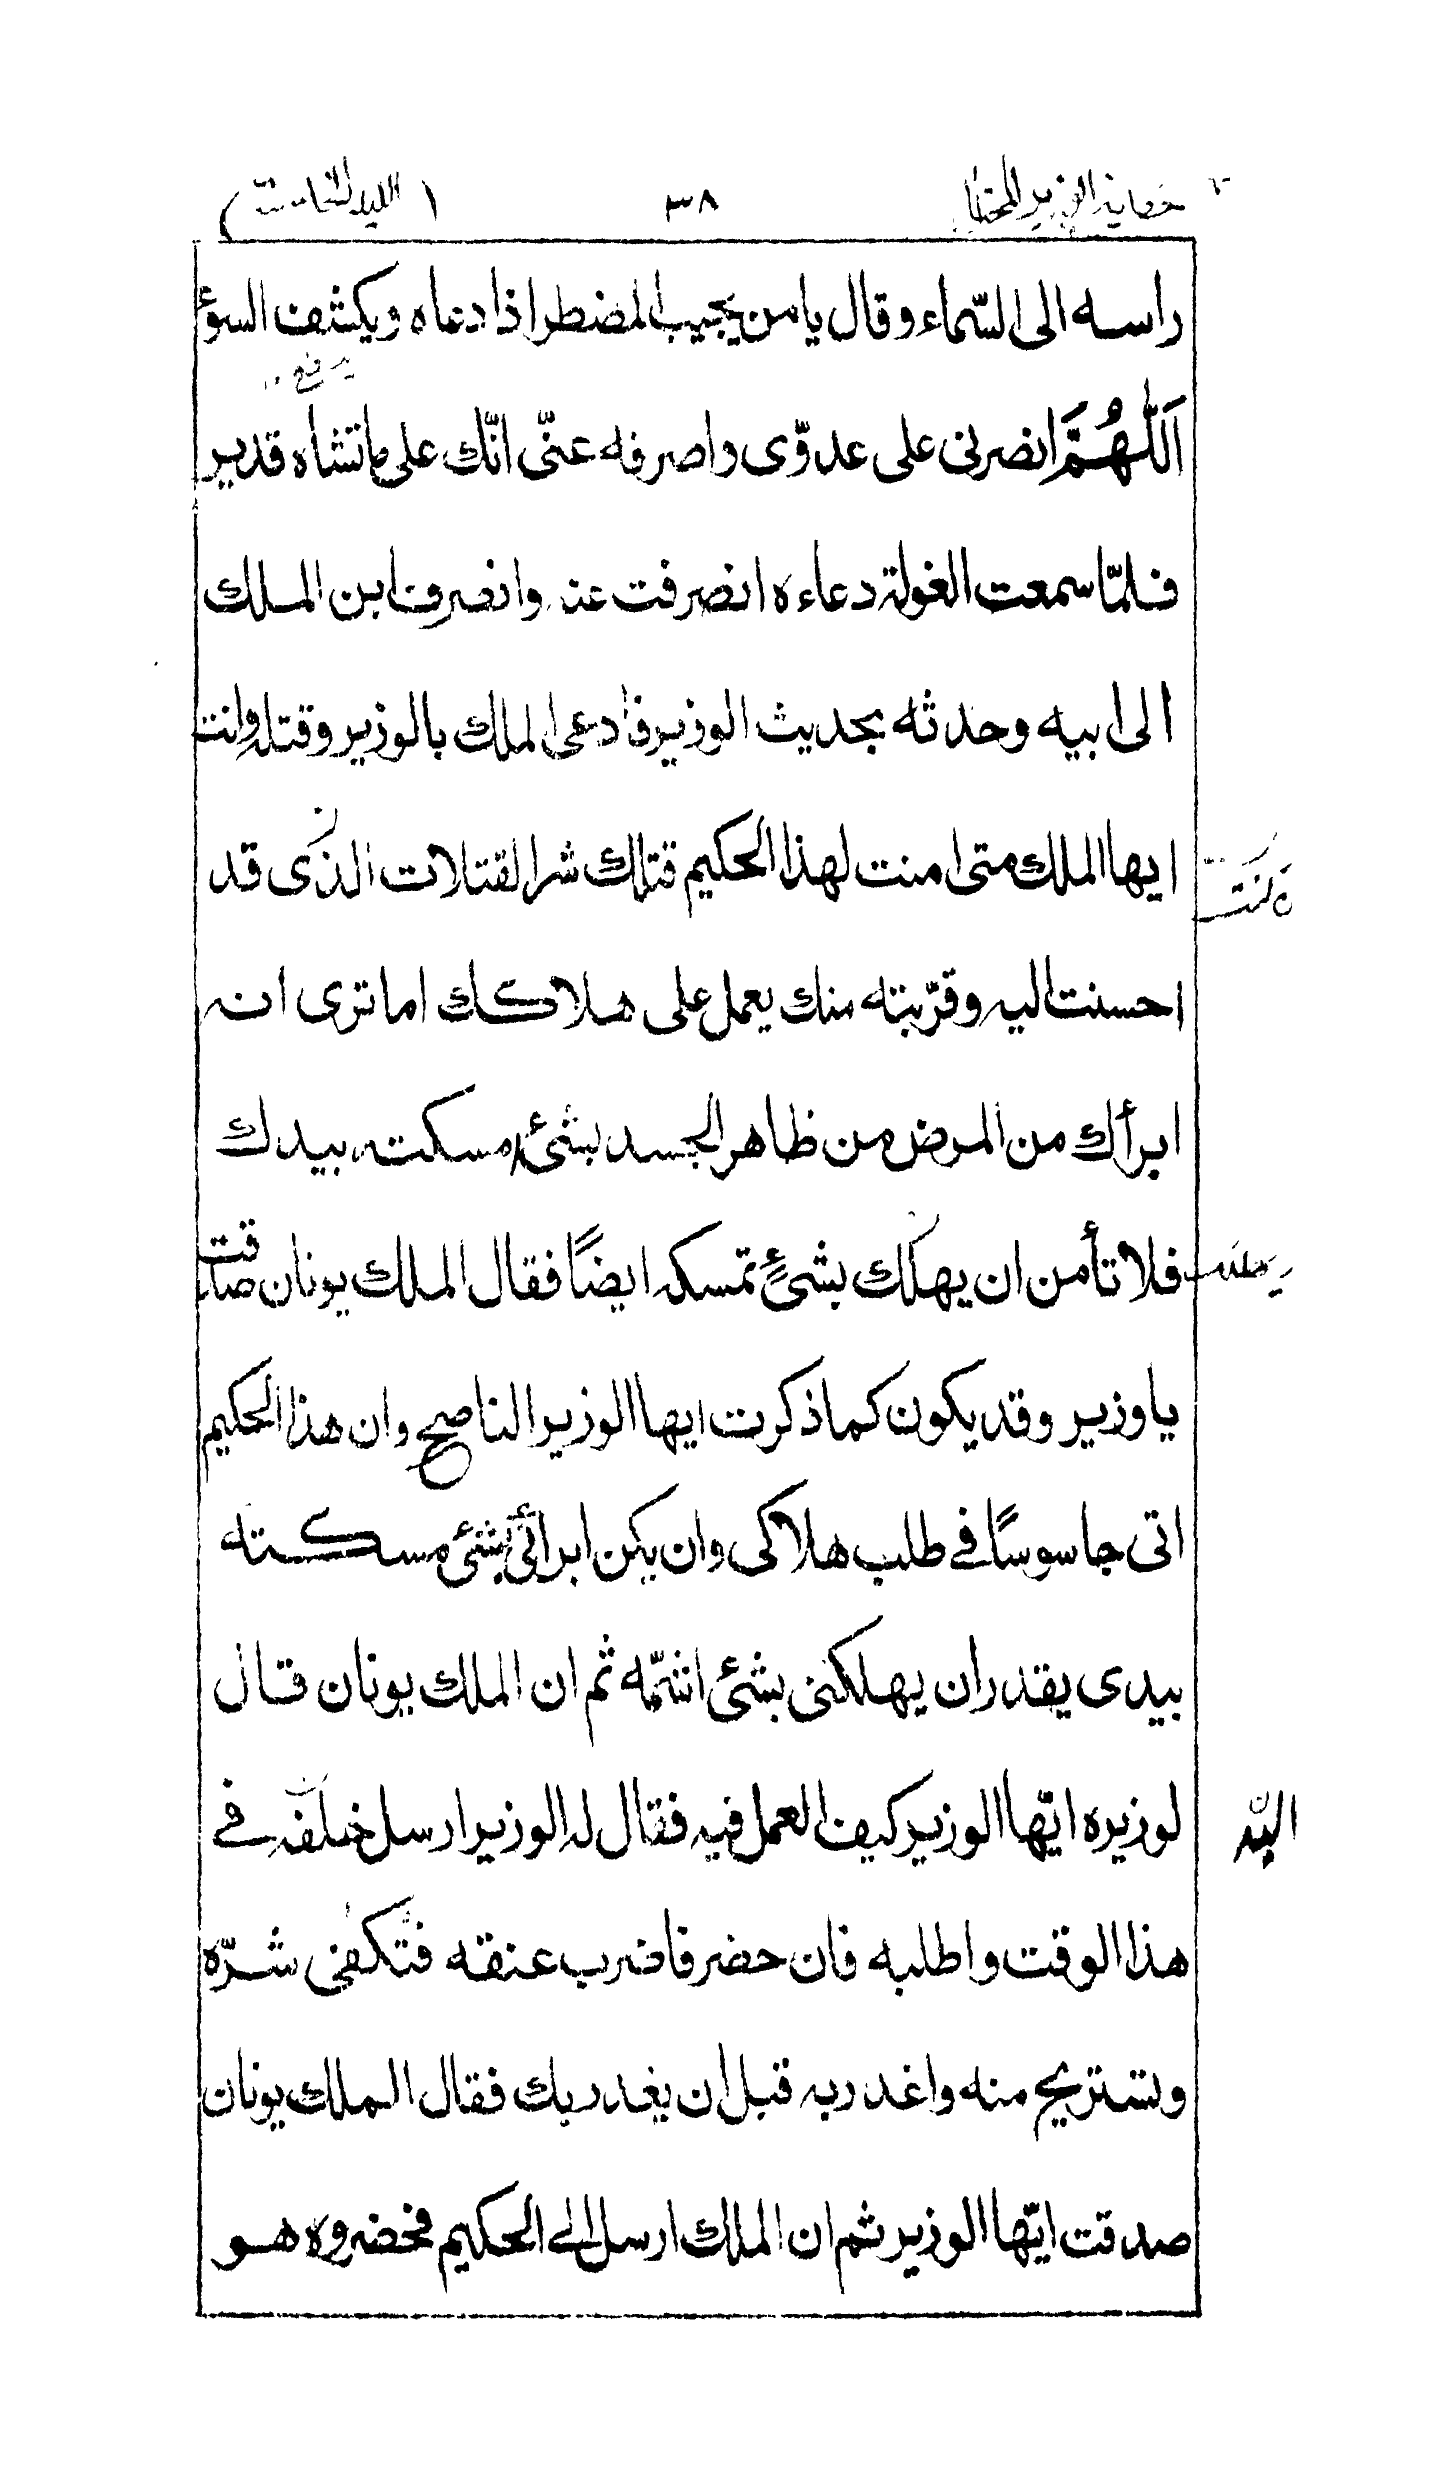 حكاية الوزير المحتال ٣٨ ( الليلة الخامسة )
راسه الى السّماء وقال يا من يجيب المضطر اذا دعاه ويكشف السوء
اَللّٰهُمَّ انصرنى على عدوّى واصرفه عنّى انّك على ما تشاء قدير
فلمّا سمعت الغولة دعاءه انصرفت عنه وانصرف ابن الملك
الى ابيه وحدثه بحديث الوزير فادعى الملك بالوزير وقتله وانت
ايها الملك متى امنت لهذا الحكيم قتلك شر القتلات الذى قد
احسنت اليه وقرّبته منك يعمل على هلاكك اما ترى انه
ابرأك من المرض من ظاهر الجسد بشئ امسكته بيدك
فلا تأمن ان يهلك بشئٍ تمسكه ايضًا فقال الملك يونان صدقت
يا وزير وقد يكون كما ذكرت ايها الوزير الناصح وان هذا الحكيم
اتى جاسوسًا فے طلب هلاكى وان يكن ابرأنى بشئ مسكته
بيدى يقدر ان يهلكنى بشئ اشمّه ثم ان الملك يونان قال
لوزيره ايّها الوزير كيف العمل فيه فقال له الوزير ارسل خلفه فے
اليه
هذا الوقت واطلبه فان حضر فاضرب عنقه فتكفى شرّه
وتستريح منه واغدر به قبل ان يغدر بك فقال الملك يونان
صدقت ايّها الوزير ثم ان الملك ارسل الے الحكيم فحضر وه هو